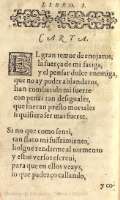 LIBRO. I.
CARTA.
EL gran temor de enojaros,
la fuerça de mi fatiga,
y el pensar dulce enemiga,
que no ay poder ablandaros,
han conduzido mi fuerte
con penas tan desiguales,
que fueran presto mortales
si quisiera ser mas fuerte.
Si no que como senti,
tan claro mi sufrimiento,
holgose tenderme al tormento
y estos versos ofreci,
para que en ellos veays,
lo que padeço callando,
y co